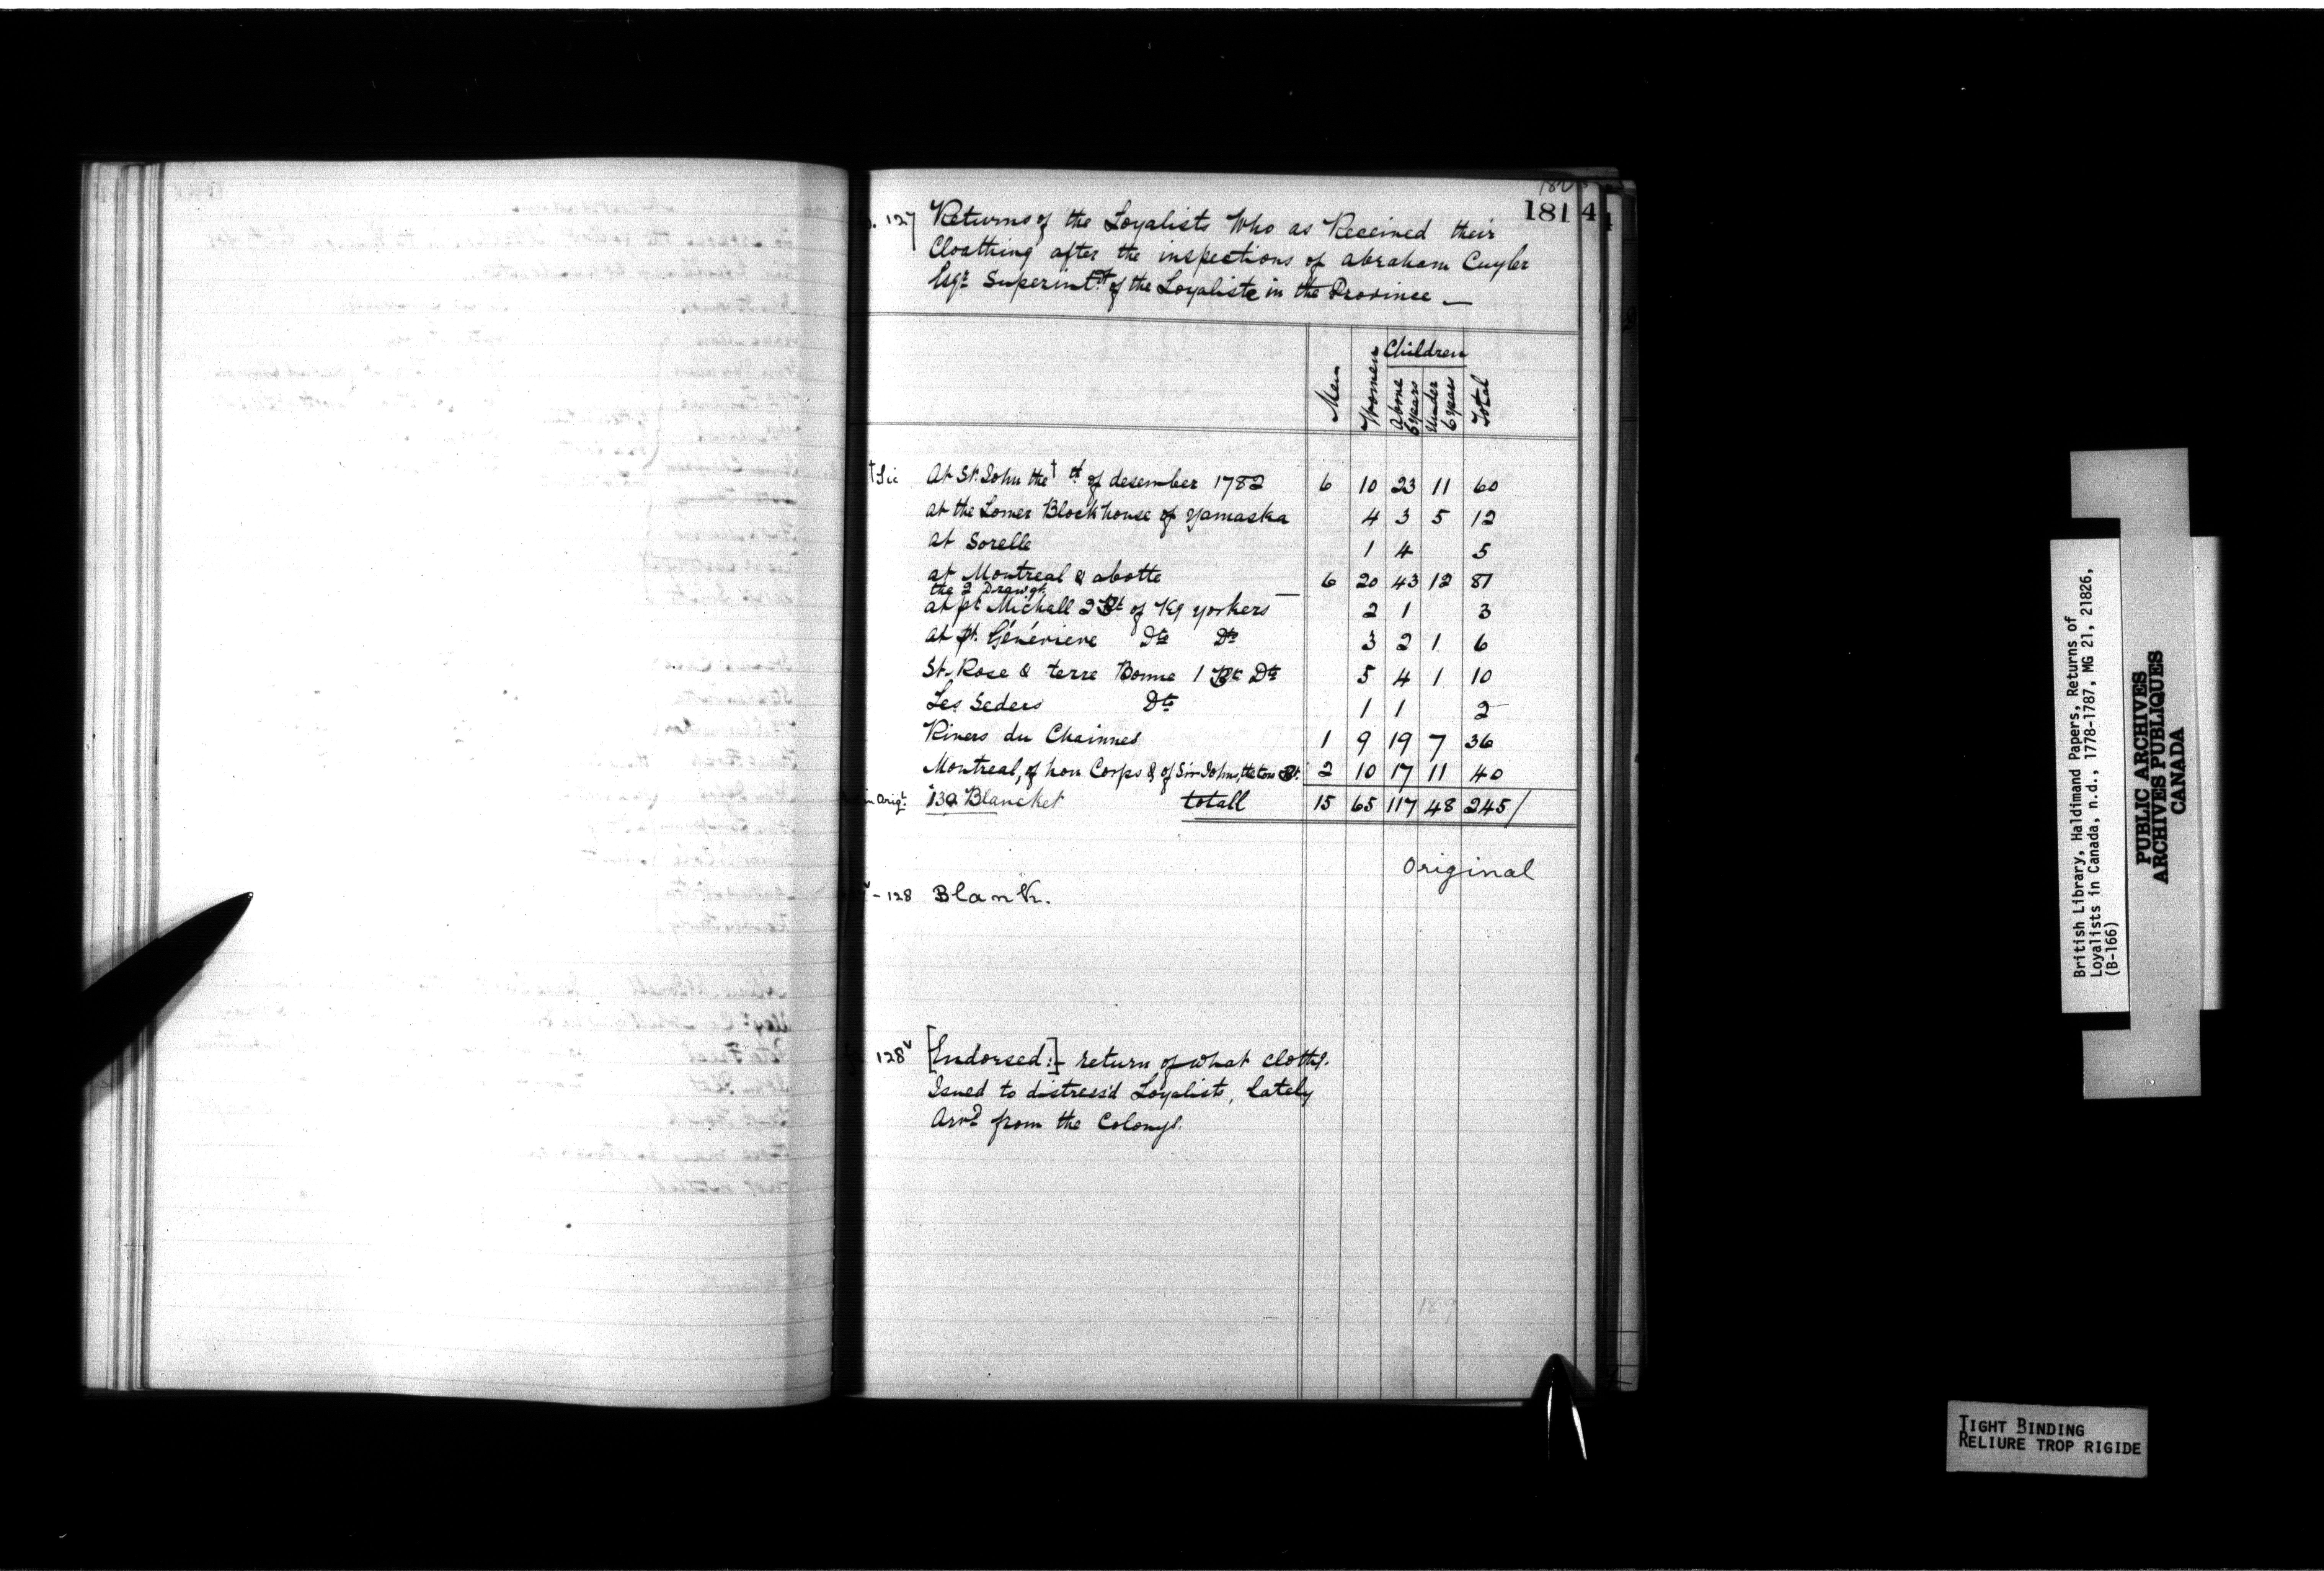 182
181 4
127 Returns of the Loyalists Who as Received their
Cloathing after the inspections of abraham Cuyler
Esqr Superintdt of the Loyalists in the Province —
Children
Men Women above 6 years Under 6 years Total
†Sic At St. John the † d. of desember 1782 6 10 23 11 60
at the Lomer Blockhouse of Yamaska 4 3 5 12
at Sorelle 1 4 5
at Montreal & abotte 6 20 43 12 81
the 2
at pt Michall 2 Bt of Kg yorkers 2 1 3
at pt. Généviere Dto Dto 3 2 1 6
St. Rose & terre Bonne 1 Bt Dto 5 4 1 10
Les Seders Dto 1 1 2
Rivers du Chainnes 1 9 19 7 36
Montreal, of hon Corps & of Sir Johns, 2 10 17 11 40
in Origl. 132 Blancket totall 15 65 117 48 245/
Original
- 128 Blank.
128v [Endorsed:]- return of what cloths.
Isued to distress'd Loyalists, lately
Arvd from the Colonys.
189
British Library, Haldimand Papers, Returns of
Loyalists in Canada, n.d., 1778-1787, MG 21, 21826,
(B-166)
PUBLIC ARCHIVES
ARCHIVES PUBLIQUES
CANADA
TIGHT BINDING
RELIURE TROP RIGIDE